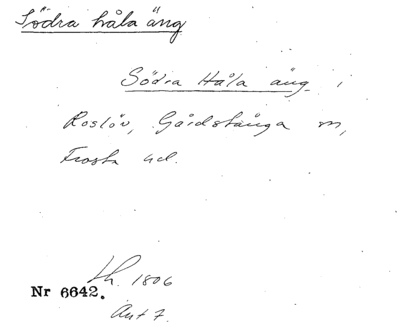 Södra håla äng
Södra Håla äng i
Roslöv, Gårdstånga m,
Frosta hd.
Lh. 1806
Nr 6642.
Akt 7.